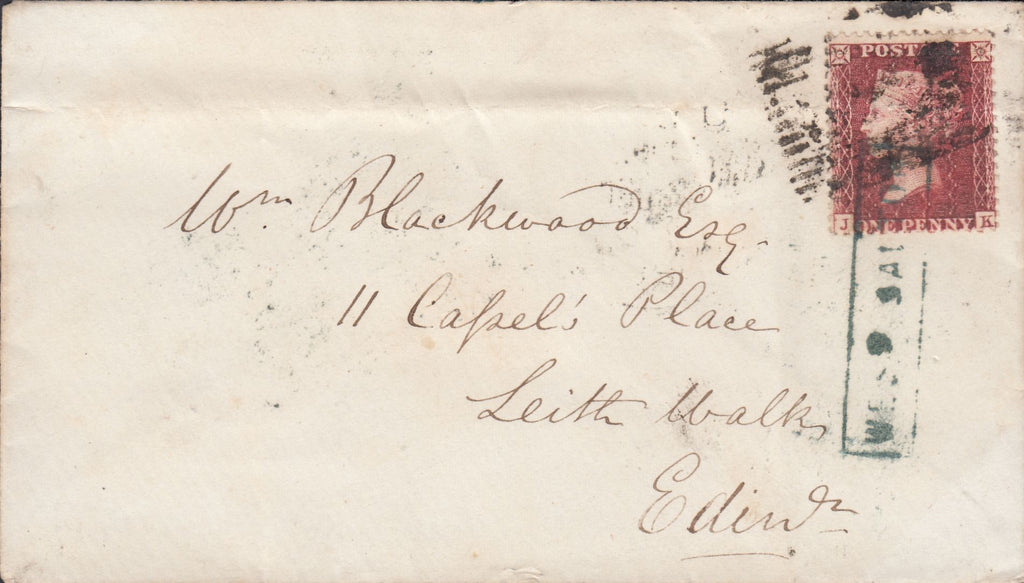 POSTAGE
J ONE PENNY K
Wm. Blackwood Esq.
11 Caſsel's Place
Leith Walk
Edinr